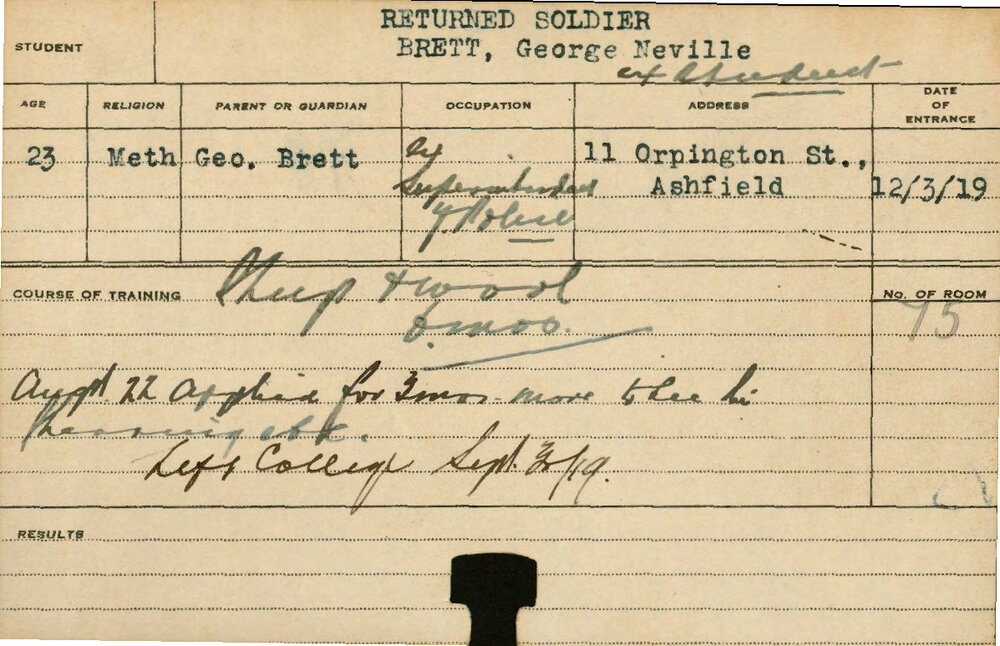 RETURNED SOLDIER
STUDENT
BRETT, George Neville
ex Student
AGE RELIGION PARENT OR GUARDIAN OCCUPATION ADDRESS DATE OF ENTRANCE
23 Meth Geo. Brett ex Superintendent of Police 11 Orpington St., Ashfield 12/3/19
COURSE OF TRAINING Sheep & Wool No. OF ROOM
6 mos. 75
Augst. 22 applied for 3 mos. more to be in
shearing
Left College Sept. /19.
RESULTS